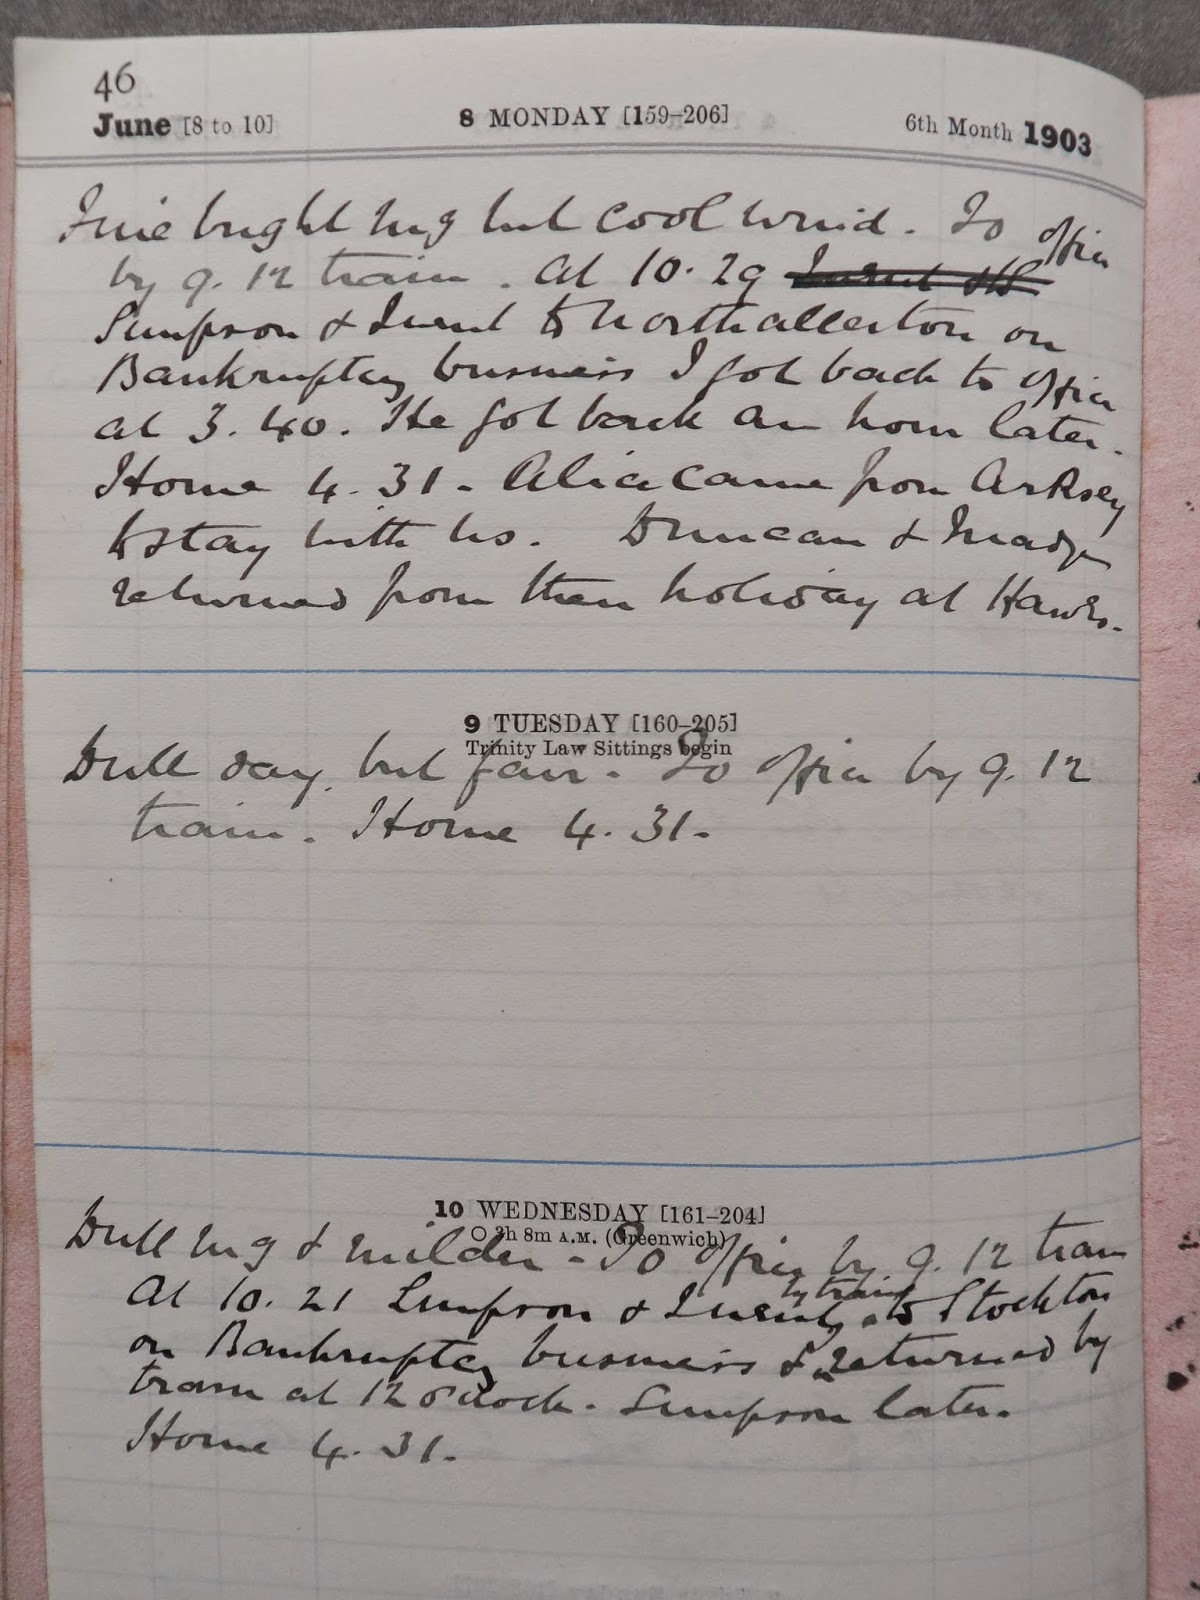 46
June [8 to 10] 8 MONDAY [159–206] 6th Month 1903
Fine bright mg but cool wind. To office
by 9.12 train. At 10.29
Simpson & I went to Northallerton on
Bankruptcy business I got back to office
at 3.40. He got back an hour later.
Home 4.31. Alice came from Arksey
to stay with us. Duncan & Madge
returned from their holiday at Hawes.
9 TUESDAY [160–205]
Trinity Law Sittings begin
Dull day, but fair. To office by 9.12
train. Home 4.31.
10 WEDNESDAY [161–204]
○ 3h 8m A.M. (Greenwich)
Dull mg & milder. To office by 9.12 train
At 10.21 Simpson & I went by train to Stockton
on Bankruptcy business & I returned by
train at 12 o'clock. Simpson later.
Home 4.31.